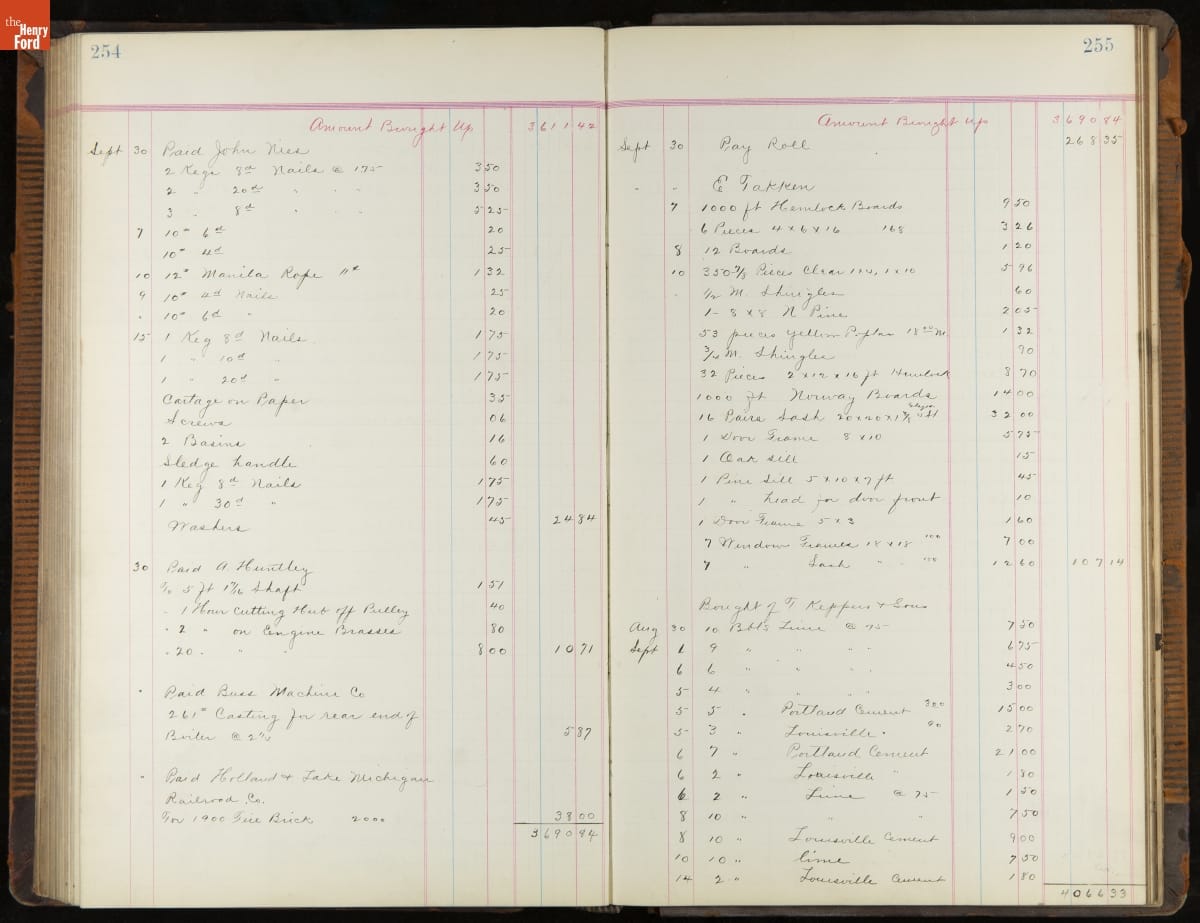 the Henry Ford
254
Amount Brought Up 3611 42
Sept 30 Paid John Nies
2 Kegs 8d Nails @ 175 3 50
2 " 20d " " " 3 50
3 " 8d " " " 5 25
7 10# 6d 20
10# 4d 25
10 12# Manila Rope 11¢ 1 32
9 10# 4d Nails 25
" 10# 6d " 20
15 1 Keg 8d Nails 1 75
1 " 10d " 1 75
1 " 20d " 1 75
Cartage on Paper 35
Screws 06
2 Basins 16
Sledge handle 60
1 Keg 8d Nails 1 75
1 " 30d " 1 75
Washers 45 24 84
30 Paid A. Huntley
To 5 ft 1 7/16 Shaft 1 51
" 1 Hour Cutting Hub off Pulley 40
" 2 " on Engine Brasses 80
" 20 " " 8 00 10 71
" Paid Buss Machine Co
261# Casting for rear end of
Boiler @ 2 1/4 5 87
" Paid Holland & Lake Michigan
Railroad Co.
For 1900 Fire Brick 2000 38 00
3690 84
255
Amount Brought Up 3690 84
Sept 30 Pay Roll 268 35
" " E Takken
7 1000 ft Hemlock Boards 9 50
6 Pieces 4 x 6 x 16 168 3 26
8 12 Boards 1 20
10 350 7/8 Pieces Clear 1x4, 1x10 5 96
" 1/2 M. Shingles 60
1- 8 x 8 N Pine 2 05
53 pieces Yellow Poplar 18 00 M. 1 32
3/4 M. Shingles 90
32 Pieces 2 x 12 x 16 ft Hemlock 8 70
1000 ft Norway Boards 14 00
16 Pairs Sash 20 x 20 x 1 3/8 32 00
1 Door Frame 8 x 10 5 75
1 Oak sill 15
1 Pine Sill 5 x 10 x 7 ft 45
1 " head for door front 10
1 Door Frame 5 x 3 1 60
7 Window Frames 18 x 18 100 7 00
7 " Sash " " 12 60 107 14
Bought of T Keppers & Sons
Aug 30 10 Bbls Lime @ 75 7 50
Sept 1 9 " " " " 6 75
6 6 " " " " 4 50
5 4 " " " " 3 00
5 5 " Portland Cement 300 15 00
5 3 " Louisville " 90 2 70
6 7 " Portland Cement 21 00
6 2 " Louisville " 1 80
6 2 " Lime @ 75 1 50
8 10 " " " 7 50
8 10 " Louisville Cement 9 00
10 10 " lime 7 50
14 2 " Louisville Cement 1 80
4066 33